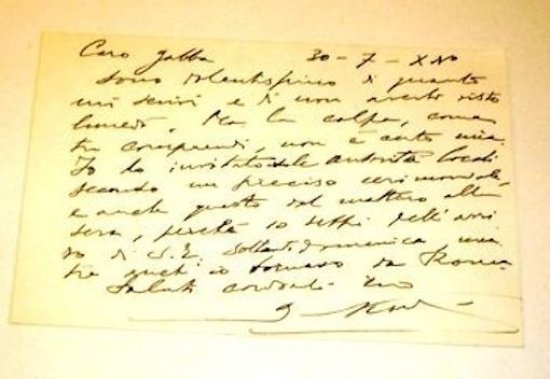 Caro Gabba 30-7-XNo
sono dolentissimo di quanto
mi scrivi e di non averti visto
lunedì. Ma la colpa, come
tu comprendi, non è certo mia.
Io ho invitato le autorità locali
secondo un preciso cerimoniale,
e anche questo dal mattino alla
sera, perché io seppi dell'arri
vo di S.E. soltanto domenica, men
tre io tornavo da Roma.
Saluti cordiali tuo